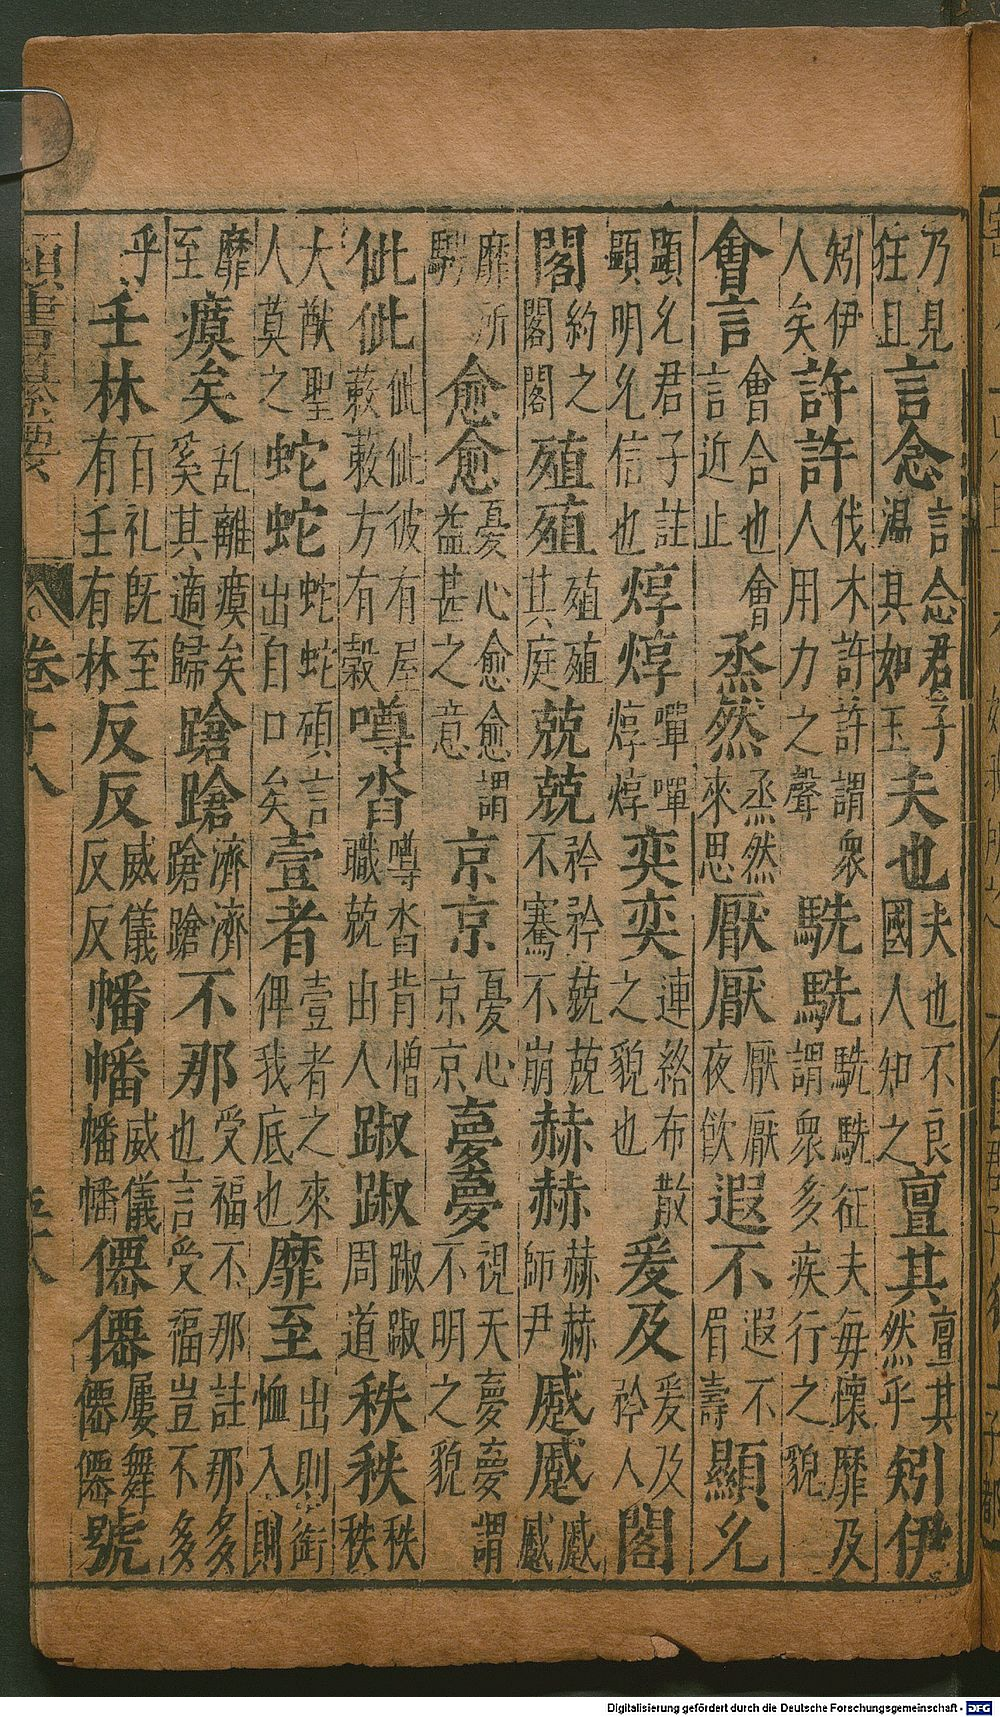 乃見狂且言念言念君子溫其如玉夫也夫也不良國人知之亶其亶其然乎矧伊
矧伊人矣許許伐木許許謂衆人用力之聲駪駪駪駪征夫每懷靡及謂衆多疾行之貌
會言會合也會言近止烝然烝然來思厭厭厭厭夜飲遐不遐不眉壽顯允
顯允君子註顯明允信也焞焞嘽嘽焞焞奕奕連絡布散之貌也爰及爰及矜人閣
閣約之閣閣殖殖殖殖其庭兢兢矜矜兢兢不騫不崩赫赫赫赫師尹蹙蹙蹙蹙
靡所騁愈愈憂心愈愈謂益甚之意京京憂心京京夢夢視天夢夢謂不明之貌
佌佌佌佌彼有屋蔌蔌方有穀噂沓噂沓背憎職兢由人踧踧踧踧周道秩秩秩秩
大猷聖人莫之蛇蛇蛇蛇碩言出自口矣壹者壹者之來俾我底也靡至出則銜恤入則
靡至瘼矣乱離瘼矣奚其適歸蹌蹌濟濟蹌蹌不那受福不那註那多也言受福豈不多
乎壬林百礼既至有壬有林反反威儀反反幡幡威儀幡幡僊僊屢舞僊僊號
類書纂要 卷十八
Digitalisierung gefördert durch die Deutsche Forschungsgemeinschaft - DFG